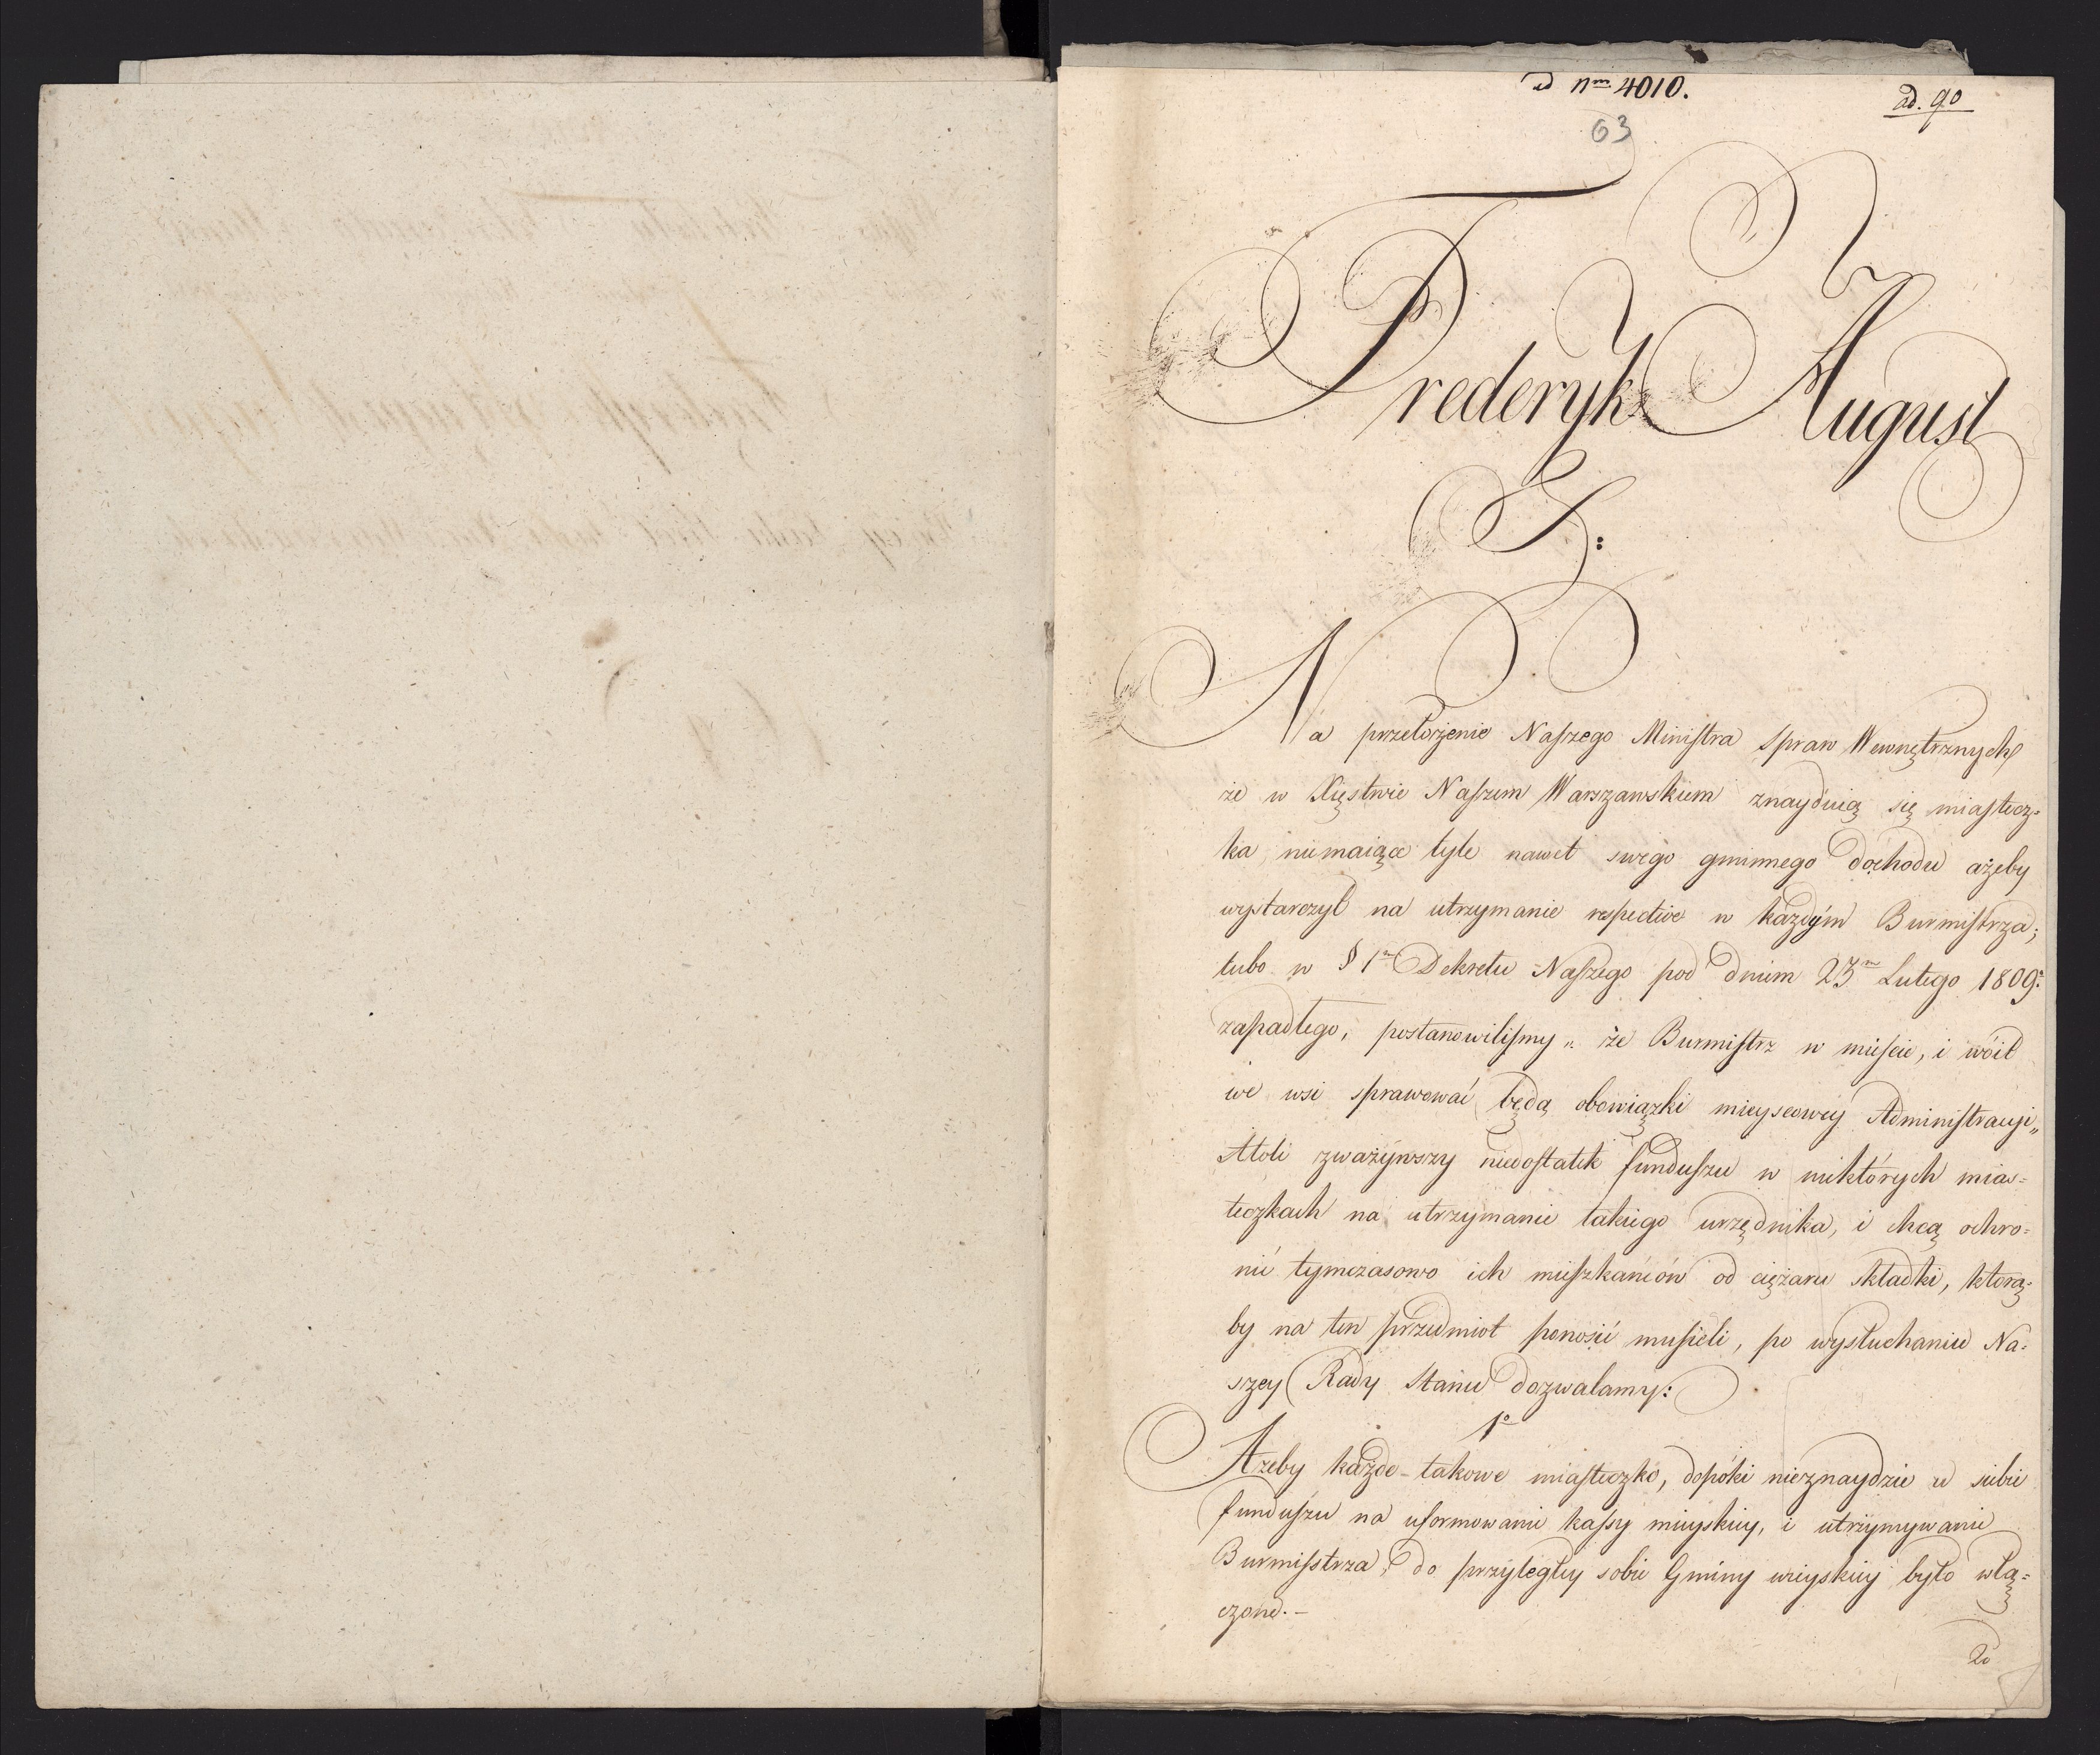 ad nm 4010.
ad. 90
63
Frederyk August
&:
Na przełożenie Naszego Ministra Spraw Wewnętrznych
że w Xięstwie Naszem Warszawskiem znayduią się miastecz-
ka, niemaiące tyle nawet swego gminnego dochodu ażeby
wystarczył na utrzymanie respective w każdym Burmistrza;
lubo w § 1m Dekretu Naszego pod dniem 23m Lutego 1809r
zapadłego, postanowilismy „ że Burmistrz w mieście, i wóit
we wsi sprawować będą obowiązki mieyscowey Administracyi„
Atoli zważywszy niedostatek funduszu w niektórych mias-
teczkach na utrzymanie takiego urzędnika, i chcąc ochro-
nić tymczasowo ich mieszkańców od ciężaru składki, którą-
by na ten przedmiot ponosić musieli, po wysłuchaniu Na-
szey Rady Stanu dozwalamy:
1o
Ażeby każde takowe miasteczko, dopóki nieznaydzie w sobie
funduszu na uformowanie kassy mieyskiey, i utrzymywanie
Burmistrza, do przyległey sobie Gminy wieyskiey było włą-
czone.-
2o